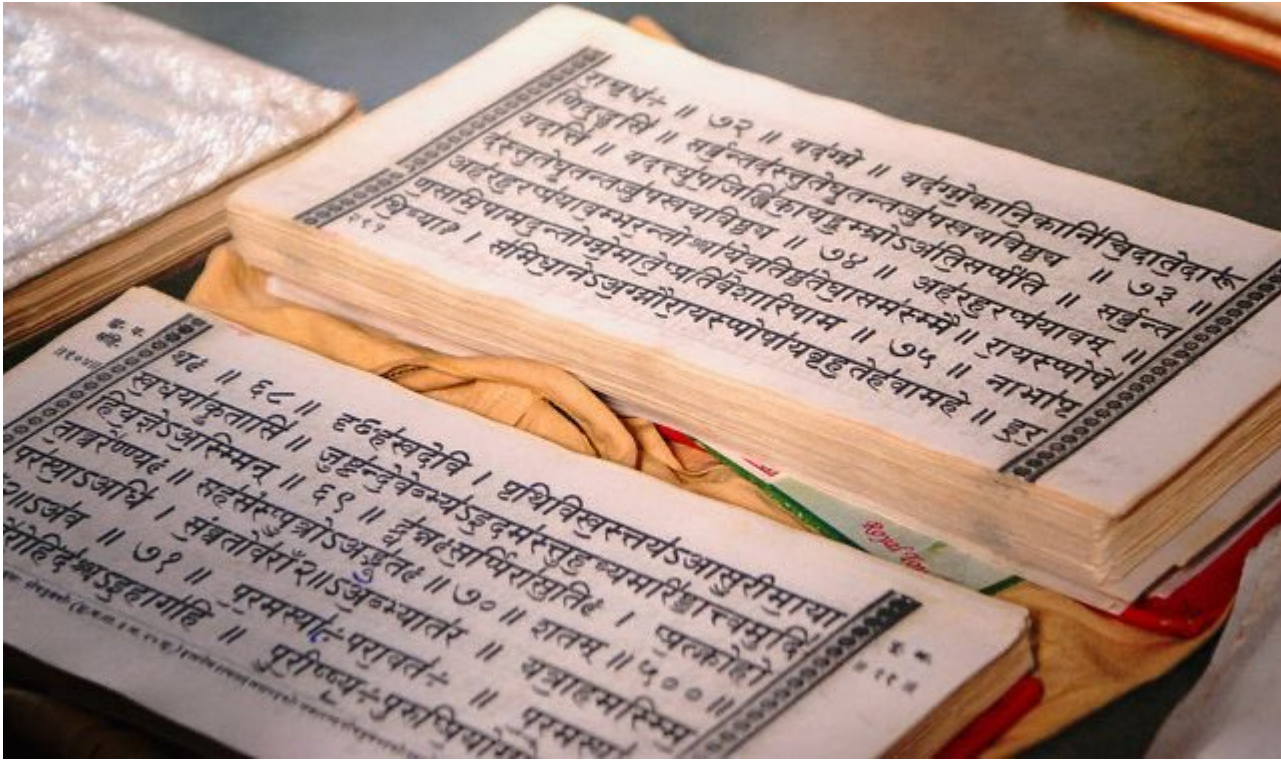 राबृधं÷ ॥ ७२ ॥ यद॑ग्ग्ने ॥ यद॑ग्ग्ने॒कानि॒कानि॑चि॒दाते॒दारू॑
सर्ब्ब॒न्तद॑स्तुतेघृ॒तन्तज्जु॑षस्वयविष्ठ्य ॥ ७३ ॥
यदत्ति॑ ॥ यदत्त्यु॑प॒जिह्वि॑का॒यद्व॒म्म्रोऽअ॑ति॒सर्प्प॑ति ॥ सर्ब्ब॒न्त
द॑स्तुतेघृ॒तन्तज्जु॑षस्वयविष्ठ्य ॥ ७४ ॥ अह॑रह॒रप्प्र॑यावम् ॥
अह॑रह॒रप्प्र॑याव॒म्भर॒न्तोश्श्वा॑येव॒तिष्ठ्ठ॑तेघा॒सम॑स्म्मै ॥ रा॒यस्प्पोषे॑
ण॒समि॒षामद॒न्तोग्ग्ने॒माते॒प्प्रति॑वेशारिषाम ॥ ७५ ॥ नाभा॑पृ
थि॒व्या? । स॑मिधा॒नेऽअ॒ग्ग्नौरा॒यस्प्पोषा॑यबृह॒तेह॑वामहे ॥
॥ ६८ ॥ दृᳪह॑स्वदेवि । पृथिविस्व॒स्तय॑ऽआसु॒रीमा॒या
स्व॒धया॑कृ॒तासि॑ ॥ जुष्ट॑न्दे॒वेब्भ्य॑ऽइ॒दम॑स्तुह॒व्यमरि॑ष्टा॒त्त्वमुदि॑
हिय॒ज्ञेऽअ॒स्मिन् ॥ ६९ ॥ द्र्व॑न्नᳪस॒र्प्पिरा॑सुतिᳪ । प्प्र॒त्क्नोहो
ता॒वरे॑ण्ण्यᳪ ॥ सह॑सस्प्पु॒त्रोऽअद्भु॑तᳪ ॥ ७० ॥ शतम् ॥ ५०० ॥
पर॑स्या॒ऽअधि॑ । सं॒व्वतोव॑राँ२॥ऽअ॒ब्भ्यात॑र ॥ यत्रा॒हमस्म्मि॒
२॥ऽअ॑व ॥ ७१ ॥ प॒र॒मस्या॑÷परा॒वत॑÷ ॥ प॒र॒मस्या॑
रोहिद॑श्श्वऽइ॒हाग॑हि ॥ पु॒री॒ष्ष्य÷पुरुप्प्रि॒योग्ग्ने
Royal